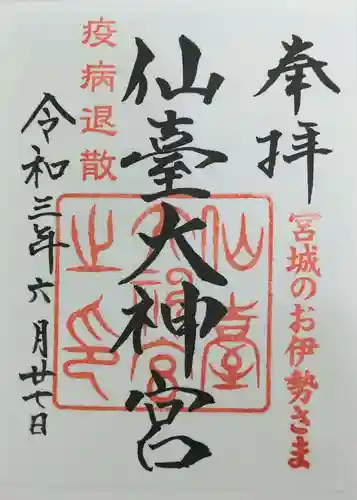 奉拝
宮城のお伊勢さま
仙臺大神宮
仙臺大神宮之印
疫病退散
令和三年六月廿七日